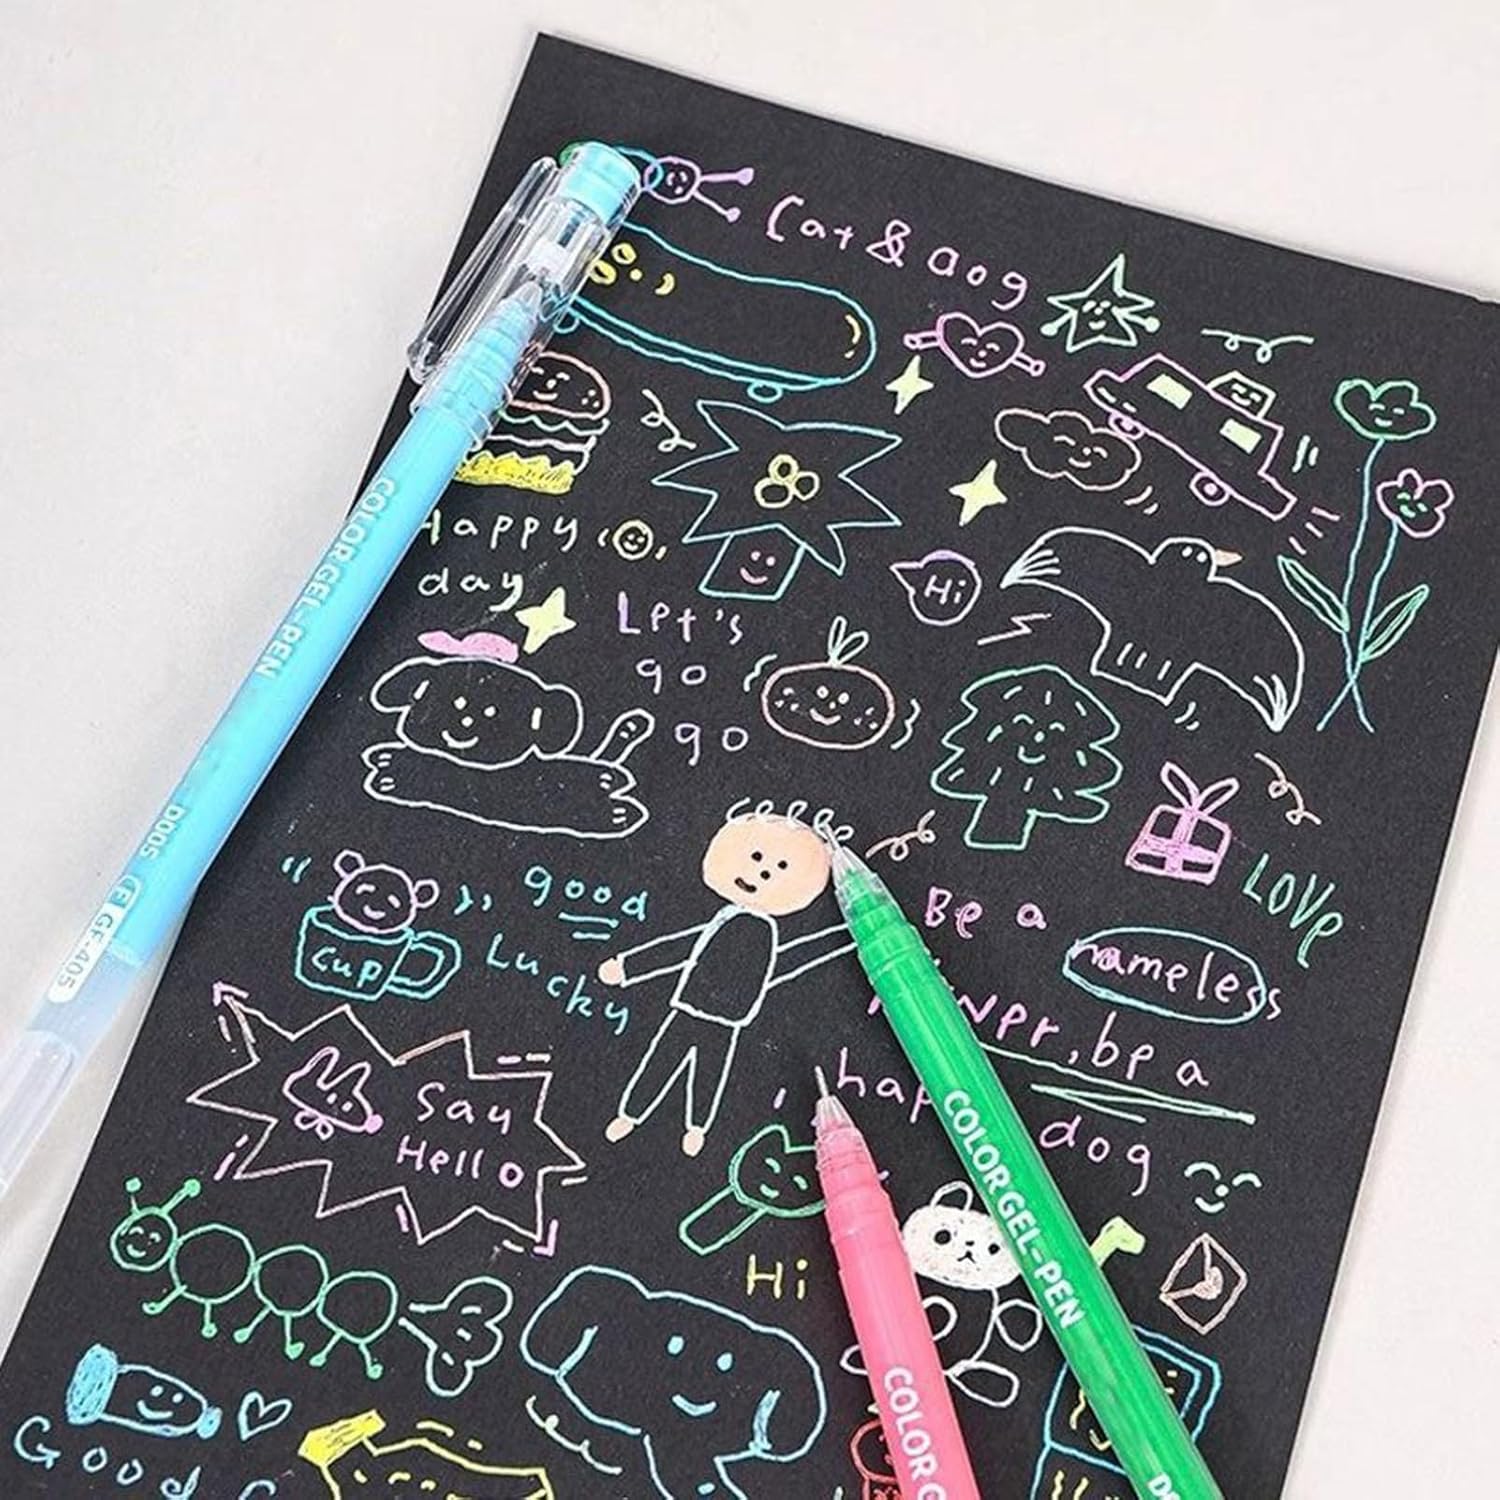 Cat & dog
Happy
day
Hi
Let's
go
go
LOVE
good
Lucky
cup
Be a
nameless
be a
dog
Say
Hello
Hi
Good
COLOR GEL-PEN
D005
F GP-405
COLOR GEL-PEN
COLOR